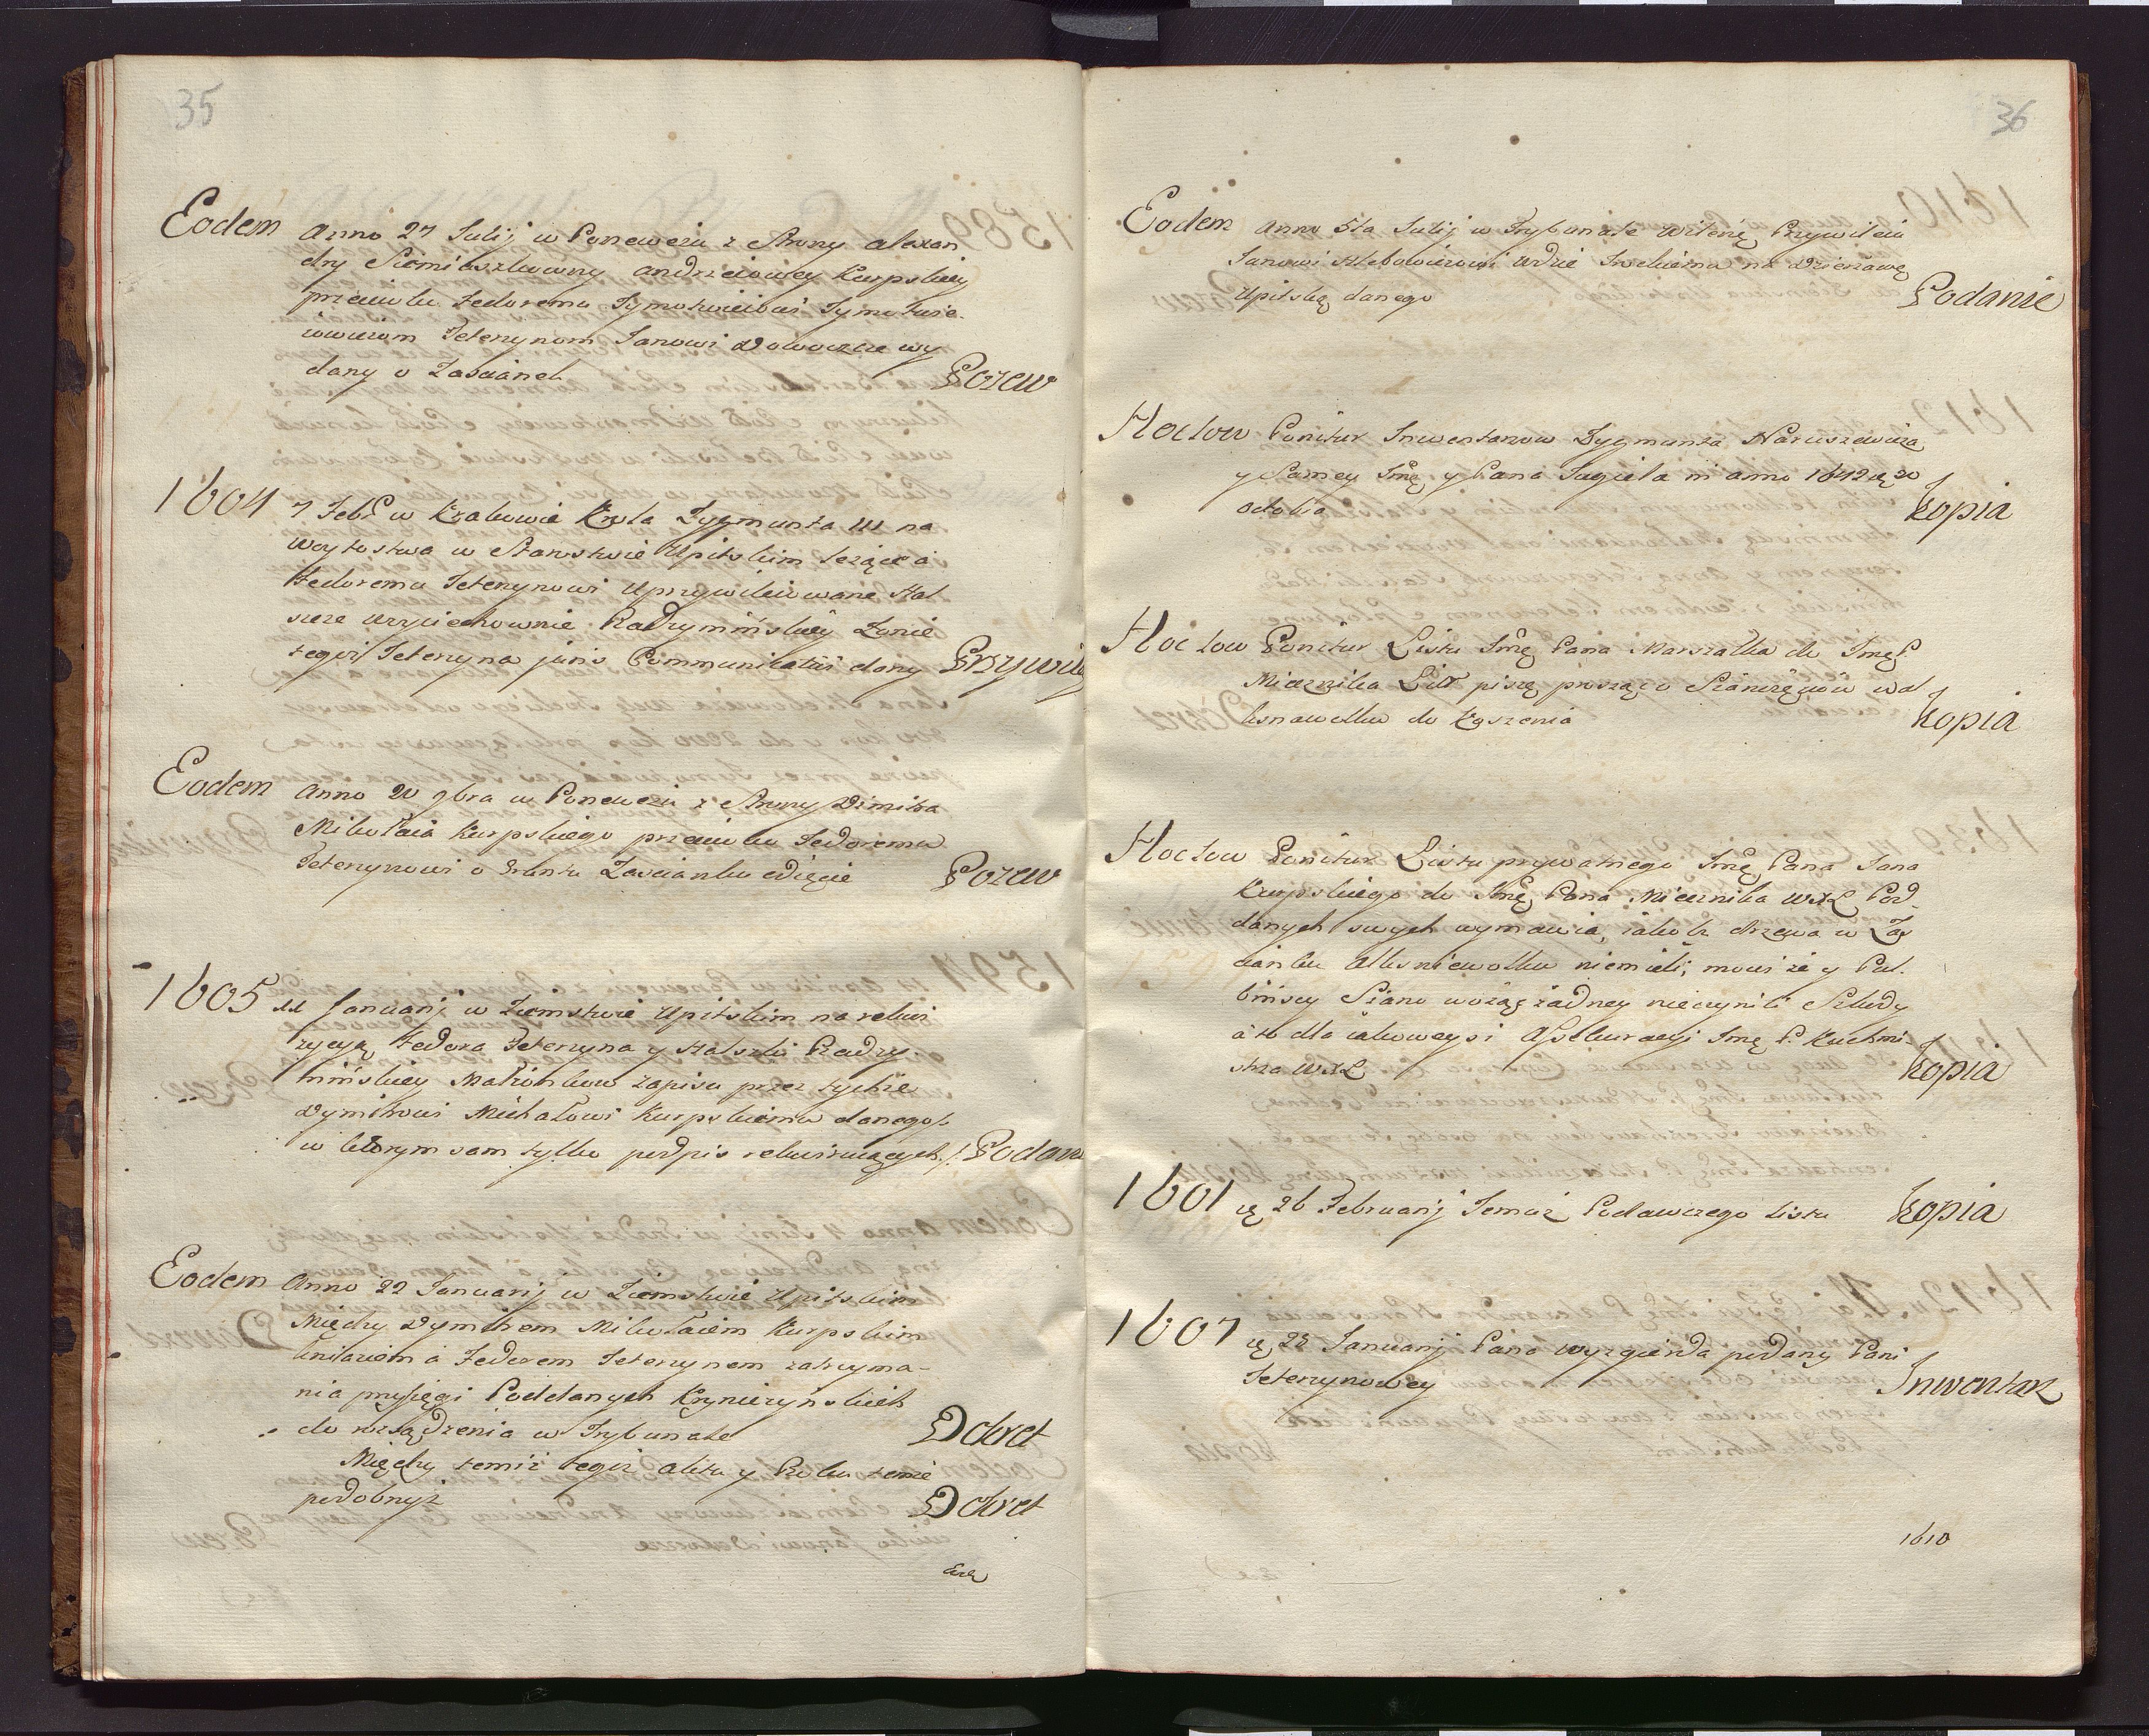 35
Eodem Anno 27 Julij w Poneweżu z Strony alexan
dry Siemiaszkowny andrzeiowey Kurpskiey
przeciwko Fedoremu
Teterynom Janowi Dowoycze wy
dany o Zascianek Pozew
1604 7 Febr w Krakowie Krola Zygmunta III na
Woytostwa w Starostwie Upitskim leżące á
Fedoremu Teterynowi Uprzywileiowane Hal
szce Woyciechownie Radzymińskiey Żonie
tegoż Teteryna juris Communicativi dany Przywiley
Eodem Anno 20 9bra w Poneweżu z Strony Dimitra
Mikołaia Kurpskiego przeciwko Fedoremu
Teterynowi o Grunta Zascianku odięcie Pozew
1605 11 Januarij w Ziemstwie Upitskim na rekwi
zycyą Fedora Teteryna y Halszki Radzy-
mińskiey Małżonkow Zapisu przez tychże
Dymitrowi Michałowi Kurpskiemu danego /.
w ktorym sam tylko podpis rekwiruiących ./. Podan
Eodem Anno 22 Januarij w Ziemstwie Upitskim
Między Dymitrem Mikołaiem Kurpskim
á Fedorem Teterynem zatrzyma-
nia przysięgi Poddanych Kryniczynskich
do rozsądzenia w Trybunale Dekret
Między temiż tegoż aktu y Roku temuż
podobnyż Dekret
36
Eodem Anno 5ta Julij w Trybunale Wilenę Przywileiu
Janowi Hlebowiczowi na Dzierżawę
Upitską danego Podanie
Hoc low Ponitur Inwentarzow Zygmunta Naruszewicza
y Samey Jmę y Pana Jagieła in anno 1642 ą 20
octobra Kopia
Hoc low Ponitur Listu Jmę Pana Marszałka do Jmę P.
Miecznika Litt pisę prosząc o Sianożęciow w al
ksnawołku do Koszenia Kopia
Hoc low Ponitur Listu prywatnego Jmę Pana Jana
Kurpskiego do Jmę Pana Miecznika WXL Pod-
danych swych wymawia, iakoby drzewa w Za
cianku Alksniewolku niemieli; mowi że y Pul.
binscy Siano wożąc żadney nieczynili Szkody
á to dla iakoweysi Assekuracyi Jmę P. Kuchmi-
strza WXL Kopia
1601 ą 26 Februarij Temuż Podawczego listu Kopia
1607 ą 28 Januarij Pana Wyzgierda podany Pani
Teterynowey Inwentarz
1610